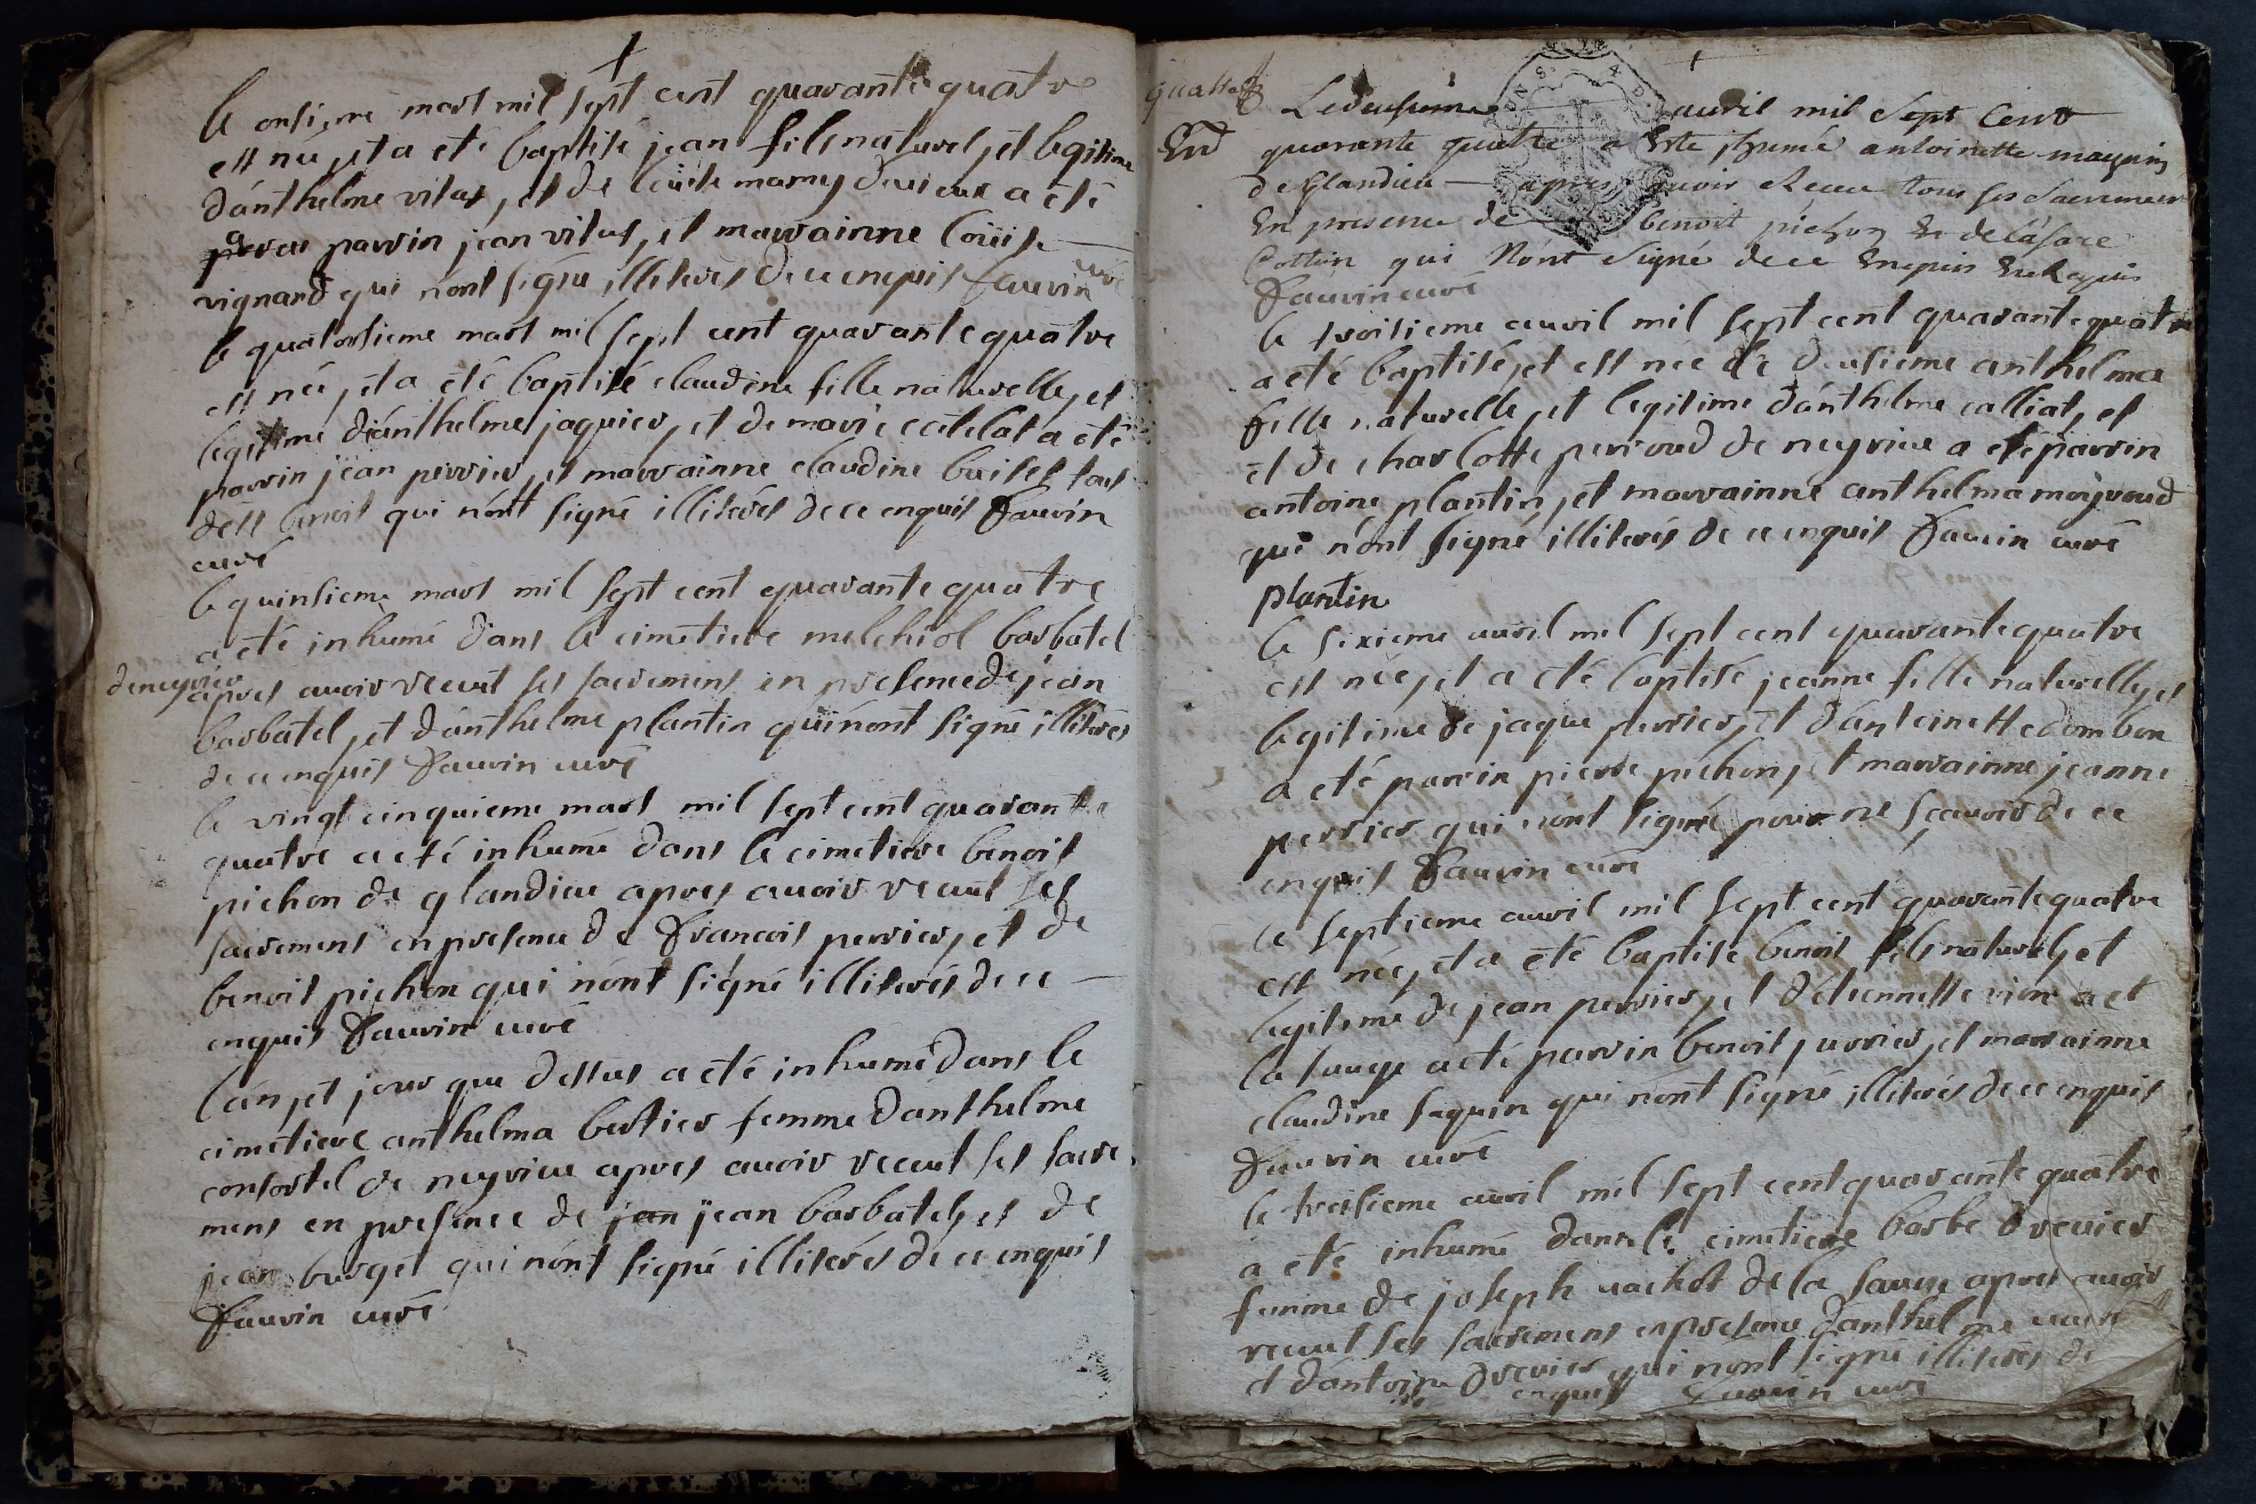 le onsieme mars mil sept cent quarante quatre
est né, et a eté baptisé jean fils naturel, et legitime
d'anthelme vitat, et de louise mamy a eté
parrin jean vitat, et marrainne louise
vignard qui n'ont signé illiterés de ce enquis fauvin curé
le quatorsieme mars mil sept cent quarante quatre
est née, et a eté baptisé claudine fille naturelle, et
legitime d'anthelme jaquier, et de marie catelat a eté
parrin jean perrier, et marrainne claudine buiset tous
de st benoit qui n'ont signé illiterés de ce enquis fauvin
curé
le quinsieme mars mil sept cent quarante quatre
a eté inhumé dans le cimetiere melchiol barbatel
de neyrieu
apres avoir receut ses sacremens en presence de jean
barbatel, et d'anthelme plantin qui n'ont signé illiterés
de ce enquis fauvin curé
le vingt cinquieme mars mil sept cent quarante
quatre a eté inhumé dans le cimetiere benoit
pichon de glandieu apres avoir receut ses
sacremens en presence de francois perrier, et de
benoit pichon qui n'ont signé illiterés de ce
enquis fauvin curé
l'an, et jour que dessus a eté inhumé dans le
cimetiere anthelma bertier femme d'anthelme
consortel de neyrieu apres avoir receut ses sacre
mens en presence de jan jean barbatel, et de
jean burget qui n'ont signé illiterés de ce enquis
fauvin curé
quatre
Le deusieme avril mil Sept Cent
quarante quatre a Este jhumé antoinette maguin
de glandieu apres avoir Receu tous ses Sacrements
En presence de benoit pichon Et de
Cottin qui N'ont Signé de ce Enquis
fauvin curé
le troisieme avril mil sept cent quarante quatre
a eté baptisé, et est née le deusieme anthelma
fille naturelle, et legitime d'anthelme calliat, et
et de charlotte perroud de neyrieu a eté parrin
antoine plantin, et marrainne anthelma moyroud
qui n'ont signé illiterés de ce enquis fauvin curé
plantin
le sixieme avril mil sept cent quarante quatre
est née, et a eté baptisé jeanne fille naturelle, et
legitime de jaque perrier, et d'antoinette dombon
a eté parrin pierre pichon, et marrainne jeanne
perrier qui n'ont signé pour ne sçavoir de ce
enquis fauvin curé
le septieme avril mil sept cent quarante quatre
est née, et a eté baptisé benoit fils naturel, et
legitime de jean perrier, et d'etiennette de
la sauge a eté parrin benoit perrier, et marrainne
claudine saquin qui n'ont signé illiterés de ce enquis
fauvin curé
le treisieme avril mil sept cent quarante quatre
a eté inhumé dans le cimetiere barbe drevier
femme de joseph vachot de la sauge apres avoir
receut ses sacremens en presence d'anthelme
et d'antoine drevier qui n'ont signé illiterés de
ce enquis fauvin curé